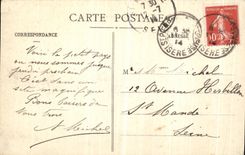 CARTE POSTALE
CORRESPONDANCE
Voici le petit pays
ou nous sommes jusque
jeudi prochain
C'est dans un
site magnifique
Bons baisers de
nous tous
A. Michel
12 Avenue Herbillon
St Mandé
Seine